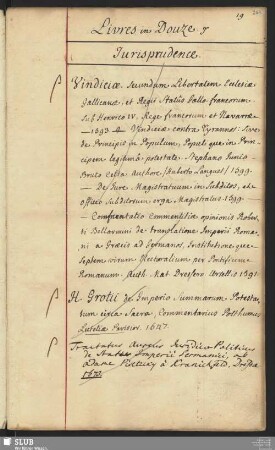 19
Livres in Douze
Jurisprudence.
Vindiciæ secundum Libertatem Ecclesiæ
Gallicanæ, et Regii Statûs Gallo-francorum
sub Henrico IV. Rege francorum et Navarræ
— 1593 — Vindiciæ contra Tyrannos: Sive
de Principis in Populum, Populi que in Prin-
cipem legitimâ potestate, Stephano Junio
Bruto Celta Authore, (Huberto Languet) 1599.
— De Jure Magistratuum in Subditos, et
officio Subditorum erga Magistratus 1599
— Confutatio commentitiæ opinionis Rober-
ti Bellarmini de translatione Imperii Roma-
ni a Græcis ad Germanos, Institutione que
Septem virum Electoralium per Pontificem
Romanum. Auth. Mat Dressero
H. Grotii de Imperio Summarum Potesta-
tum circa Sacra, Commentarius Posthumus
Lutetiæ Parisior. 1647
Tractatus Juridico Politicus
de Statu Imperii Germanici,
à Kranichfeld.
SLUB
Wir führen Wissen.